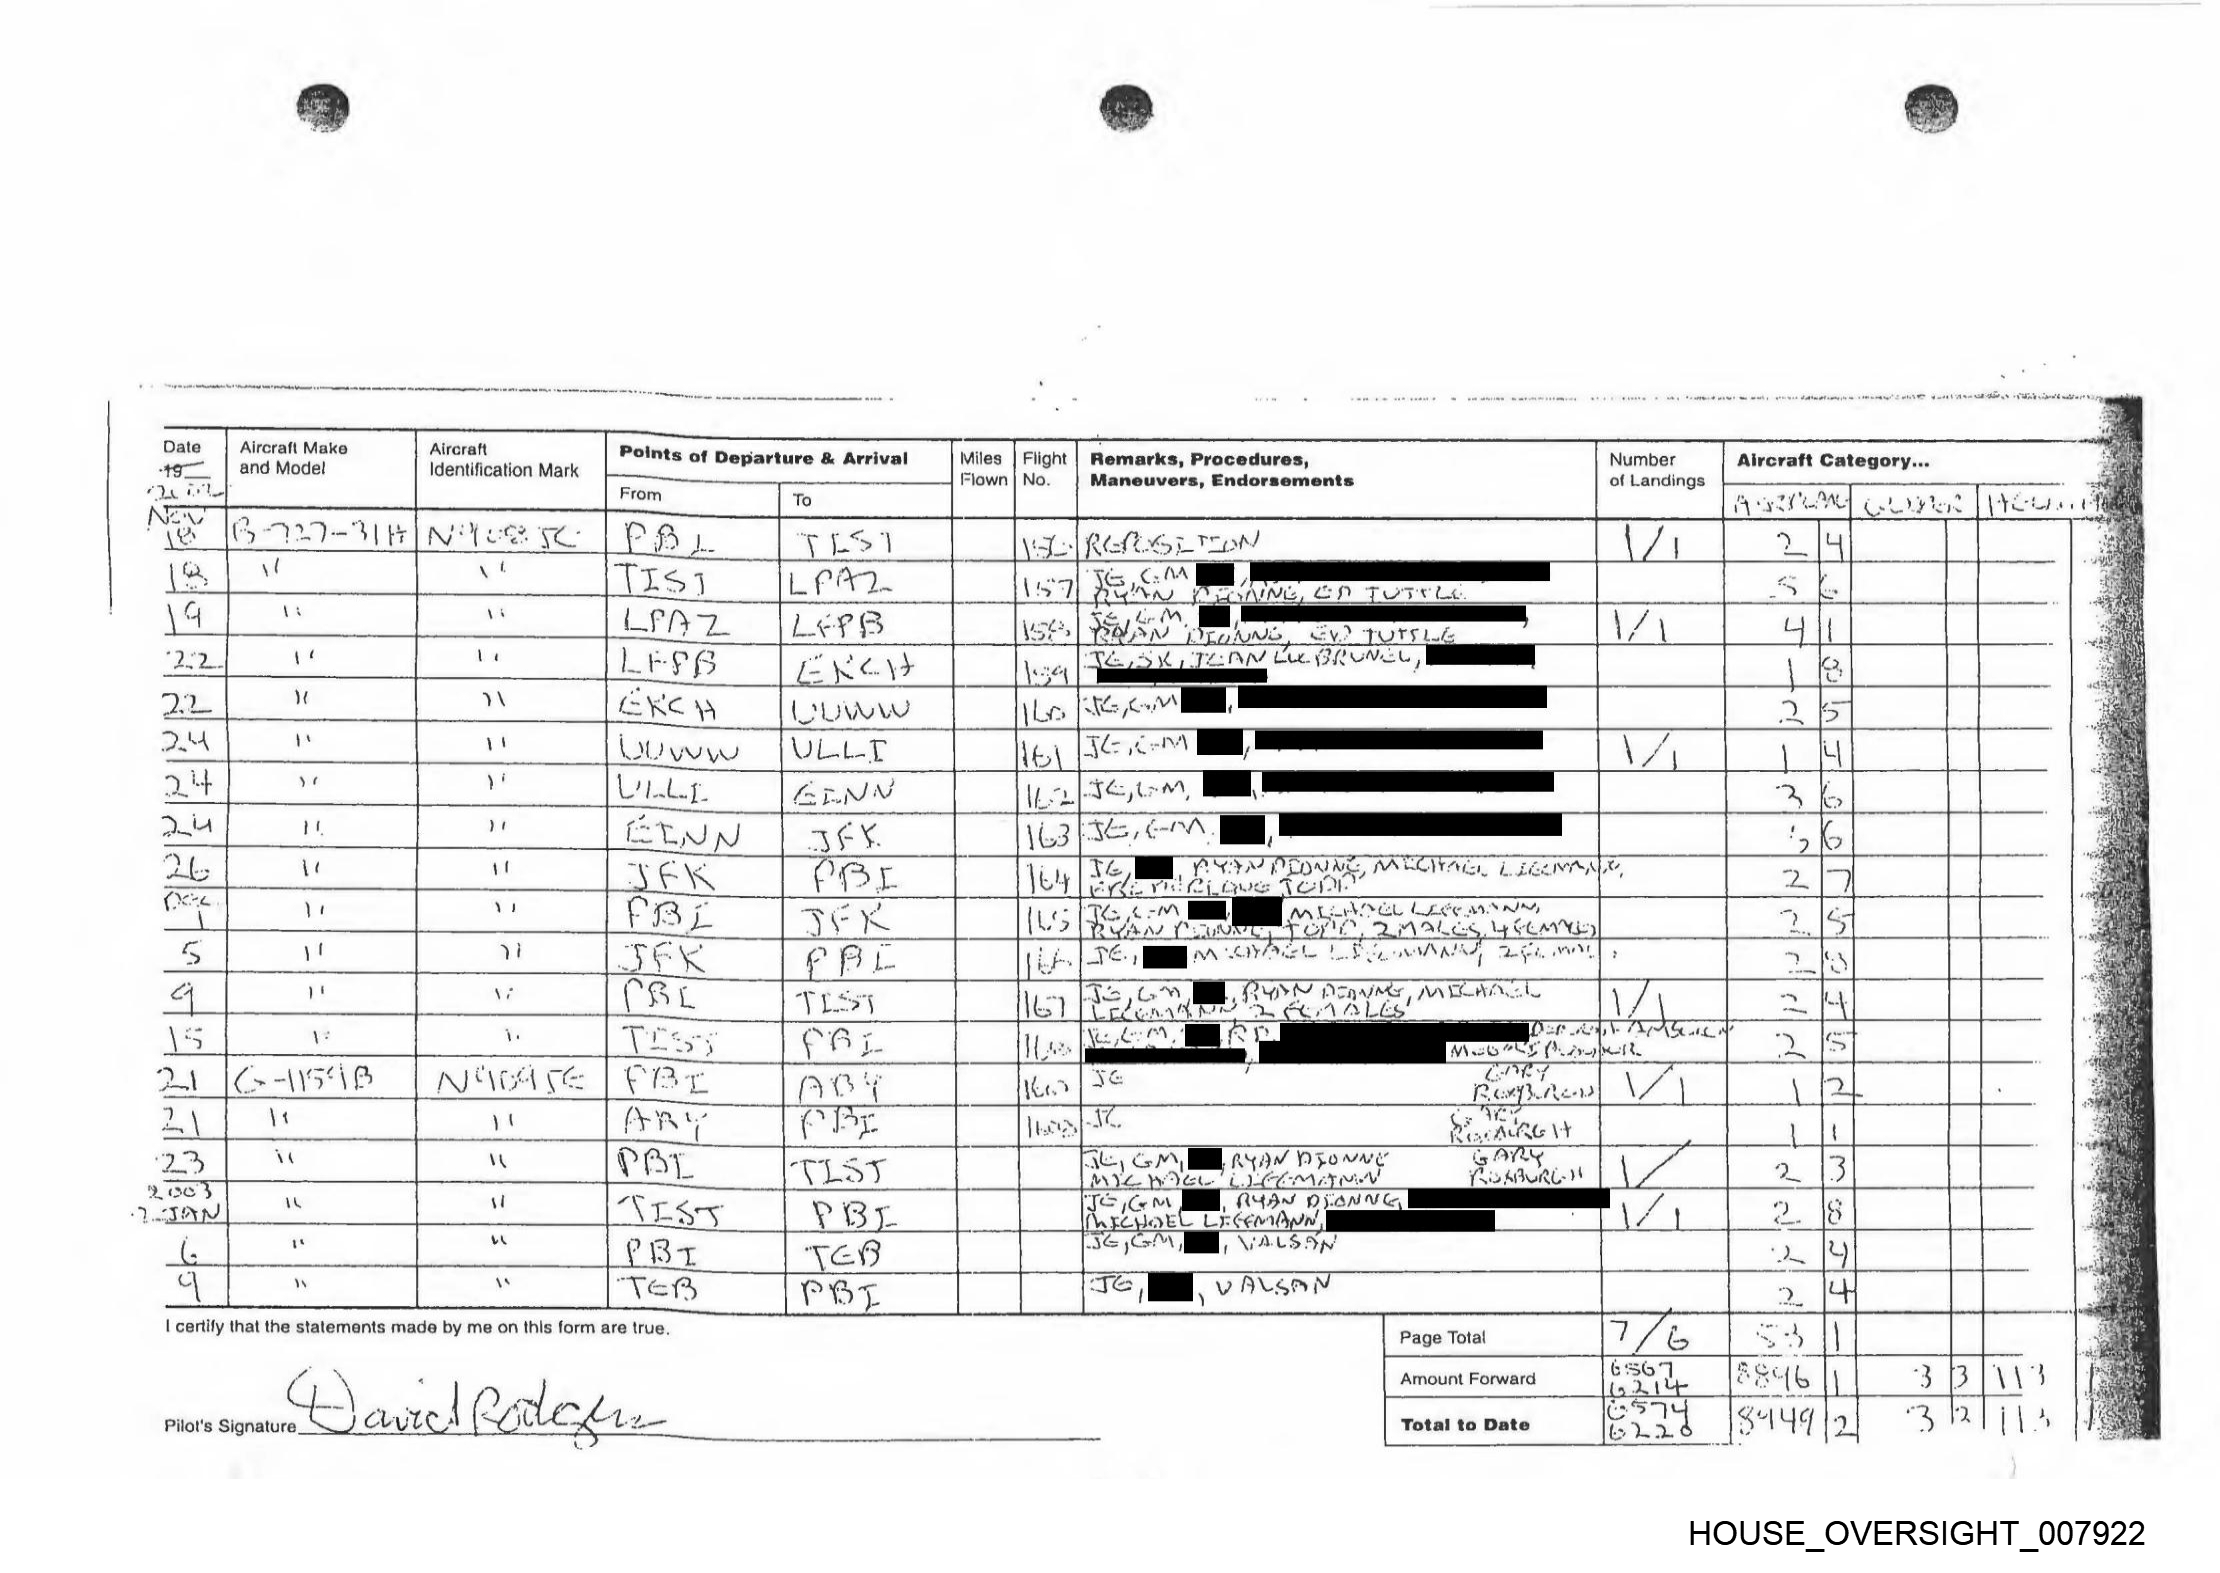 Date Aircraft Make and Model Aircraft Identification Mark Points of Departure & Arrival Miles Flown Flight No. Remarks, Procedures, Maneuvers, Endorsements Number of Landings Aircraft Category...
19 From To
NOV
18 B-727-31H N908JE PBI TIST 156 REPOSITION 1/1 2 4
18 " " TIST LPAZ 157 JE, GM , 5 6
RYAN DIONNE, ED TUTTLE
19 " " LPAZ LFPB 158 JE, GM, , 1/1 4 1
RYAN DIONNE, ED TUTTLE
22 " " LFPB EKCH 159 JE, SK, JEAN LUC BRUNEL, 1 8
22 " " EKCH UUWW 160 JE, GM , 2 5
24 " " UUWW ULLI 161 JE, GM , 1/1 1 4
24 " " ULLI EINN 162 JE, GM, , 3 6
24 " " EINN JFK 163 JE, GM, , 6
26 " " JFK PBI 164 JE, , RYAN DIONNE, MICHAEL LIFFMANN, 2 7
TODD
DEC
1 " " PBI JFK 165 JE, GM , MICHAEL LIFFMANN, 2 5
RYAN DIONNE, TODD, 2 MALES, 4 FEMALES
5 " " JFK PBI 166 JE, MICHAEL LIFFMANN, 2 8
9 " " PBI TIST 167 JE, GM, , RYAN DIONNE, MICHAEL 1/1 2 4
LIFFMANN, 2 FEMALES
15 " " TIST PBI 168 JE, GM, , 2 5
21 G-1159B N909JE PBI ABY JE GARY 1/1 1 2
ROXBURGH
21 " " ABY PBI JE GARY 1 1
ROXBURGH
23 " " PBI TIST JE, GM, , RYAN DIONNE GARY 1/ 2 3
MICHAEL LIFFMANN ROXBURGH
2003
2 JAN " " TIST PBI JE, GM , RYAN DIONNE, 1/1 2 8
MICHAEL LIFFMANN,
6 " " PBI TEB JE, GM, , VALSAN 2 4
9 " " TEB PBI JE, , VALSAN 2 4
I certify that the statements made by me on this form are true.
Page Total 7/6 53 1
Amount Forward 6567 1 3 3 113
6214
Total to Date 6574 8449 2 3 2
6220
Pilot's Signature David Rodgers
HOUSE_OVERSIGHT_007922